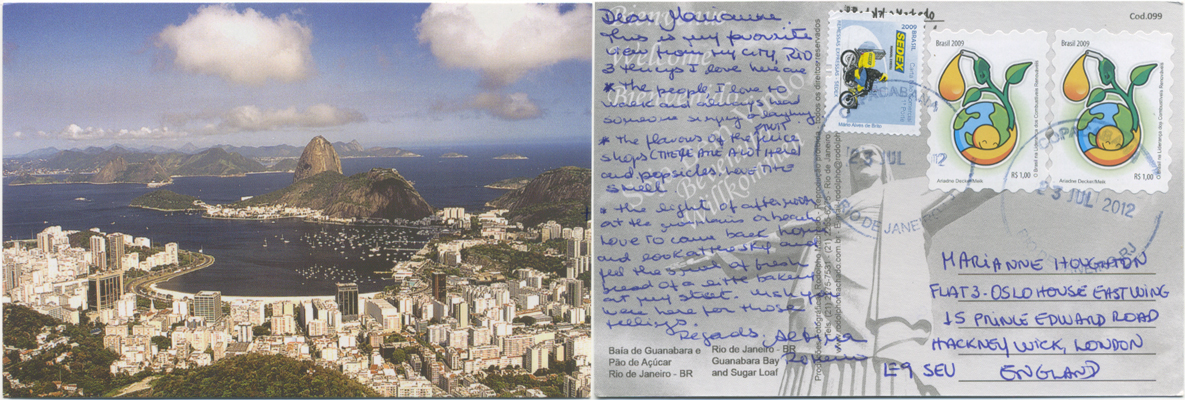 Dear Marianne.
This is my favorite
view from my city, RIO
3 things I love here are
* the people I love to
work and always find
someone simply laughing
* the flavours of the FRUIT juice
shops (THERE ARE A LOT HERE)
and popsicles. Love the
smell.
* the light of afternoon
at the famous beach
love to come back home
and look at the sky and
feel the smell of fresh
bread of a little bakery
at my street. Wish you
were here for those
feelings.
Regards
Baía de Guanabara e
Pão de Açúcar
Rio de Janeiro - BR
Rio de Janeiro - BR
Guanabara Bay
and Sugar Loaf
Bienvenue
Welcome
Bienvenido
Benvenuto
Willkommen
Cod.099
2009
BRASIL
SEDEX
Mário Alves de Brito
Brasil 2009
R$ 1,00
Ariadne Decker/Mats
Brasil 2009
R$ 1,00
Ariadne Decker/Mats
COPACABANA
23 JUL 2012
RIO DE JANEIRO
23 JUL 2012
MARIANNE HOUGHTON
FLAT 3. OSLO HOUSE EAST WING
15 PRINCE EDWARD ROAD
HACKNEY WICK, LONDON
E9 5EU ENGLAND